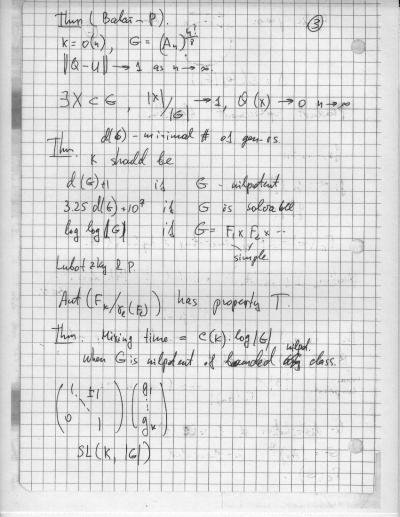 ③
Thm (Babai - P).
K = o(n), G = (An)^{n!/8}
||Q - U|| → 1 as n → ∞.
∃X ⊂ G, |X|/|G| → 1, Q(X) → 0 n → ∞
d(G) - minimal # of gen-ors
Thm. K should be
d(G)+1 if G - nilpotent
3.25 d(G) + 10^7 if G is solvable
log log |G| if G = F1 × F2 × ...
simple
Lubotzky & P.
Aut (F_K/γ_ℓ(F_K)) has property T.
Thm. Mixing time = C(K) · log |G|
when G is nilpot. of bounded class.
( 1 ±1 0 1 ) ( g1 ⋮ gk )
SL(K, |G|)